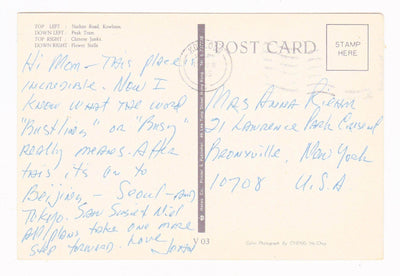 TOP LEFT : Nathan Road, Kowloon.
DOWN LEFT : Peak Tram.
TOP RIGHT : Chinese Junks.
DOWN RIGHT : Flower Stalls
POST CARD
STAMP
HERE
Hi Mom - This place is
incredible. Now I
know what the word
"Bustling" or "Busy"
really means. After
this, its on to
Beijing - Seoul - and
Tokyo.
All plans take one more
step forward. Love
Mrs Anna
21 Lawrence Park Crescent
Bronxville, New York
10708 U.S.A
V 03
Color Photograph By